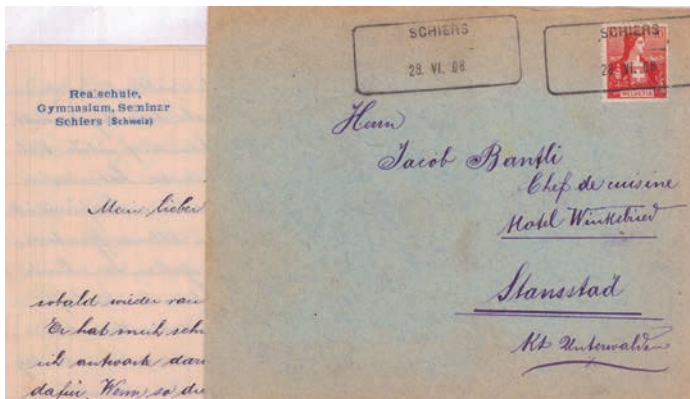 Realschule,
Gymnasium, Seminar
Schiers (Schweiz)
Mein lieber
sobald wieder
Er hat mich
ich antworte
dafür. Wenn so die
SCHIERS
28. VI. 08
SCHIERS
28. VI. 08
HELVETIA
Herrn
Jacob Bantli
Chef de cuisine
Hotel Winkelried
Stansstad
Kt Unterwalden